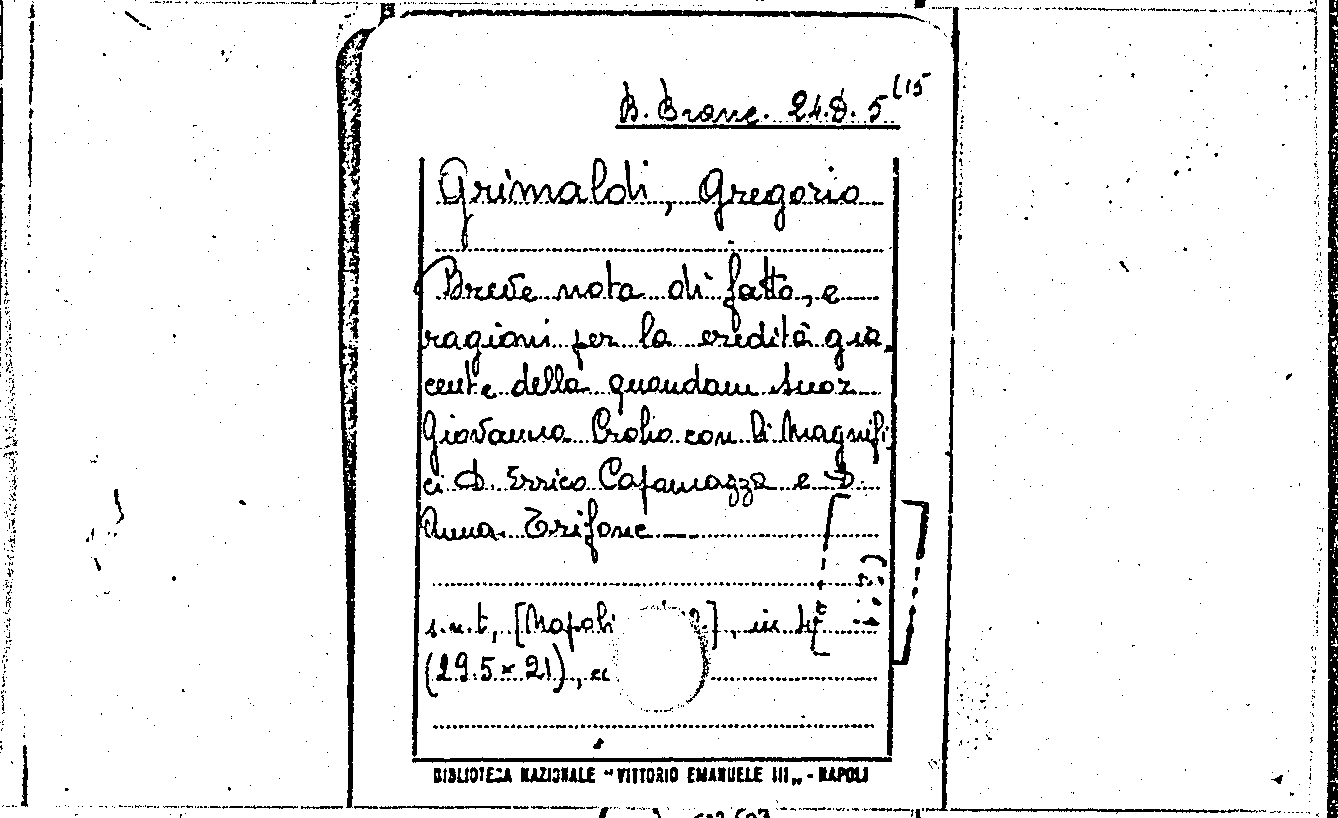 B. Branc. 24.D. 5 (15
Grimaldi, Gregorio
Breve nota di fatto, e
ragioni per la eredità gia-
cente della quandam Suor
Giovanna con li Magnifi
ci D. Errico Capomazza e D.
Anna Trifone
s.n.t, [Napoli ?], in 4°
(29.5 x 21), cc
BIBLIOTECA NAZIONALE "VITTORIO EMANUELE III„ - NAPOLI